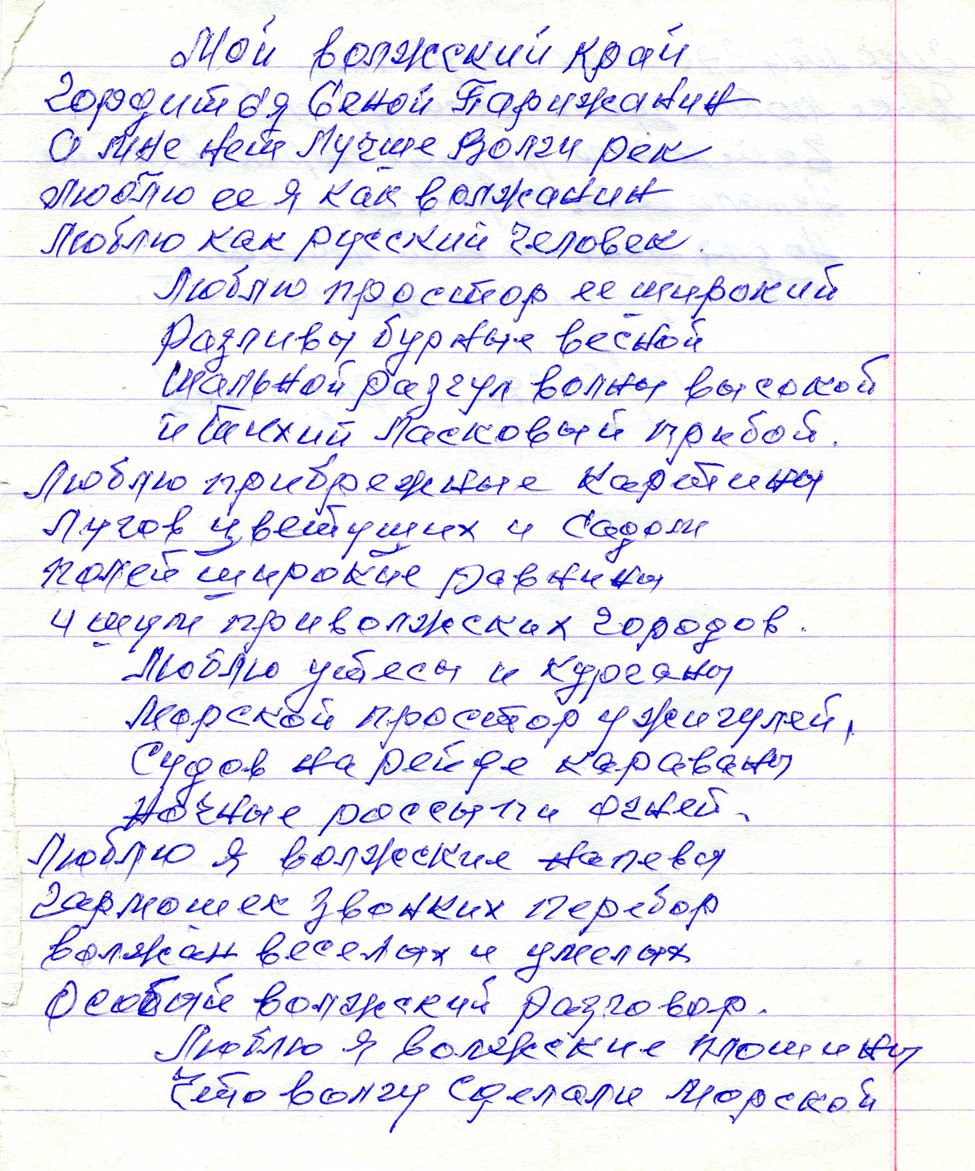 Мой волжский край
Гордится Сеной Парижанин
О мне нет Лучше Волги рек
Люблю ее я как волжанин
Люблю как русский Человек.
Люблю простор ее широкий
Разливы бурные весной
Шальной разгул волны высокой
и Тихий Ласковый прибой.
Люблю прибрежные картины
Лугов цветущих и Садом
полей широкие равнины
и шум приволжских Городов.
Люблю утесы и курганы
Морской простор у жигулей,
Судов на рейде караваны
Ночные россыпи огней.
Люблю я волжские напевы
Гармошек Звонких перебор
волжан веселых и умелых
Особый волжский разговор.
Люблю я волжские плотины
Что волгу Сделали Морской